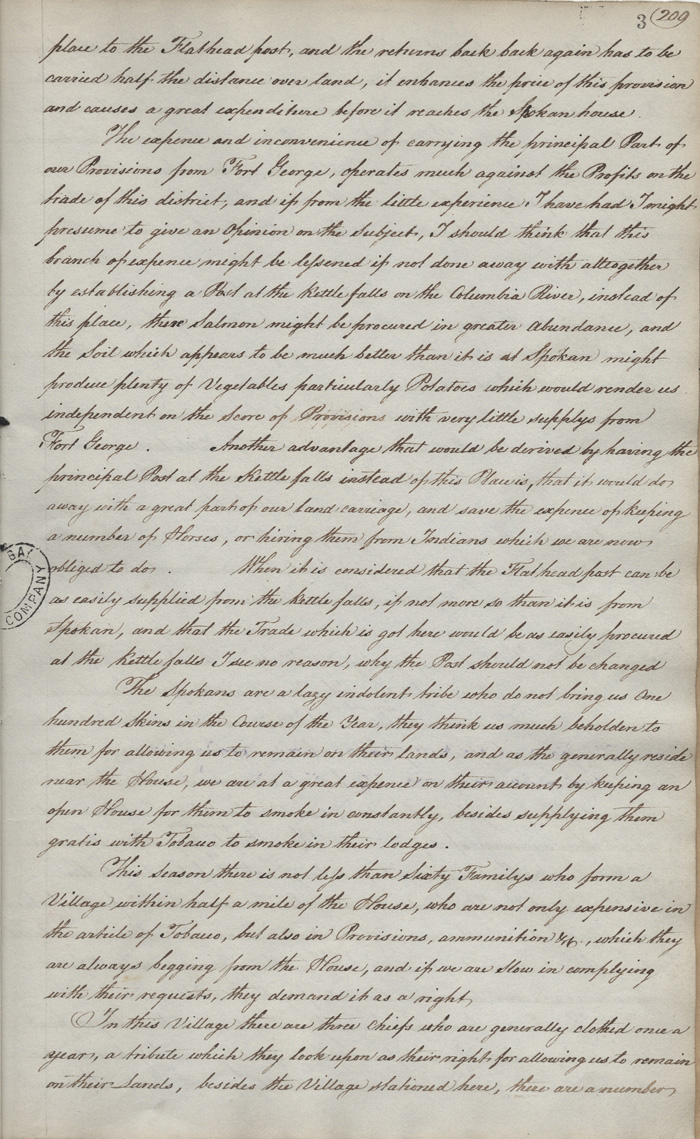 3 209
place to the Flathead post, and the returns back back again has to be
carried half the distance over land, it enhances the price of this provision
and causes a great expenditure before it reaches the Spokan house.
The expence and inconvenience of carrying the principal Part of
our Provisions from Fort George, operates much against the Profits on the
trade of this district, and if from the little experience I have had I might
presume to give an Opinion on the subject, I should think that this
branch of expence might be lessened if not done away with alltogether
by establishing a Post at the Kettle falls on the Columbia River, instead of
this place, there Salmon might be procured in greater abundance, and
the Soil which appears to be much better than it is at Spokan might
produce plenty of Vegetables particularly Potatoes which would render us
independent on the score of Provisions with very little supplys from
Fort George. Another advantage that would be derived by having the
principal Post at the Kettle falls instead of this Place is, that it would do
away with a great part of our land carriage, and save the expence of keeping
a number of Horses, or hiring them from Indians which we are now
obliged to do. When it is considered that the Flathead post can be
as easily supplied from the Kettle falls, if not more so than it is from
Spokan, and that the Trade which is got here would be as easily procured
at the Kettle falls I see no reason, why the Post should not be changed
The Spokans are a lazy indolent tribe who do not bring us One
hundred Skins in the Course of the Year, they think us much beholden to
them for allowing us to remain on their lands, and as the generally reside
near the House, we are at a great expence on their account by keeping an
open House for them to smoke in constantly, besides supplying them
gratis with Tobacco to smoke in their lodges.
This season there is not less than Sixty Familys who form a
Village within half a mile of the House, who are not only expensive in
the article of Tobacco, but also in Provisions, ammunition &c., which they
are always begging from the House, and if we are slow in complying
with their requests, they demand it as a right
In this Village there are three Chiefs who are generally clothed once a
year, a tribute which they look upon as their right for allowing us to remain
on their Lands, besides the Village stationed here, there are a number
GAY
COMPANY